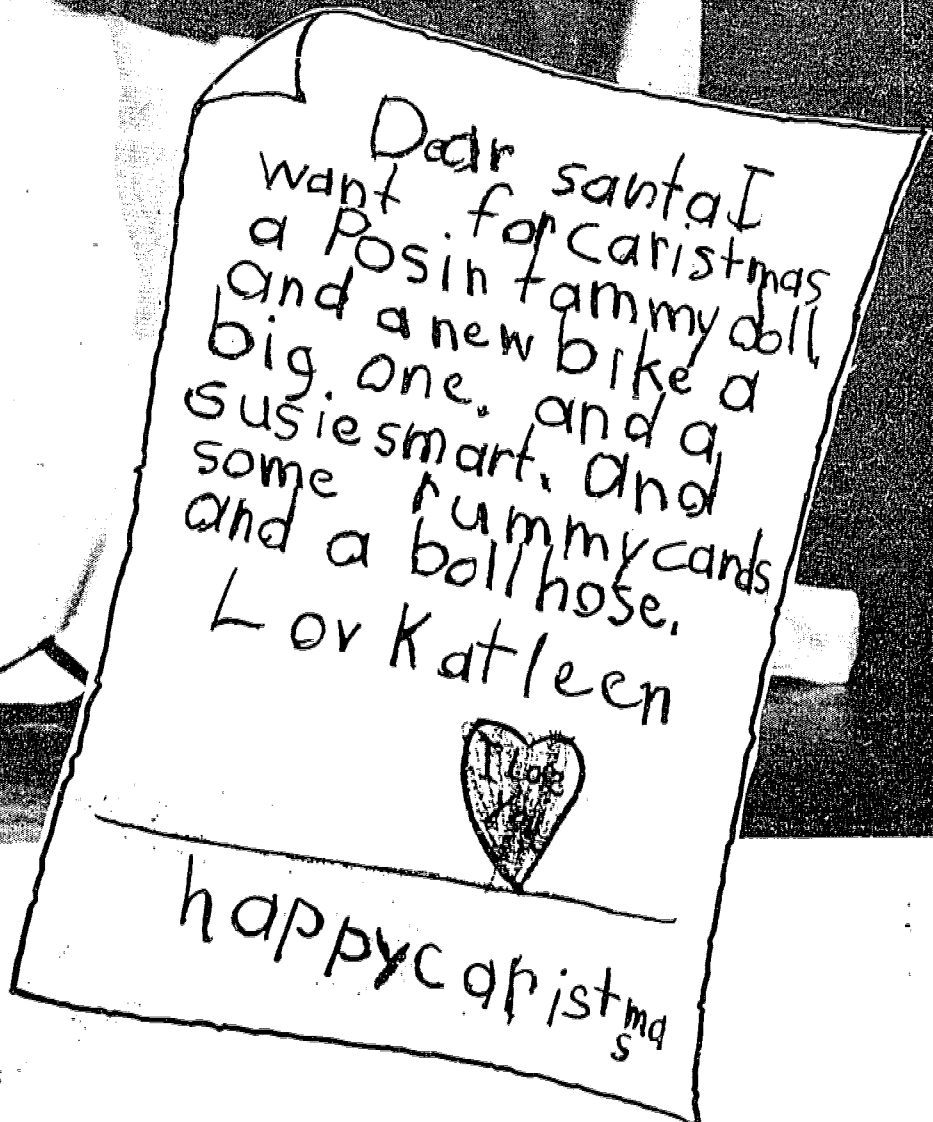 Dear santa I
want for caristmas
a Posin tammy doll,
and a new bike a
big one. and a
susie smart. and
some rummy cards
and a boll hose.
Lov Katleen
I Love
You
happy caristmas